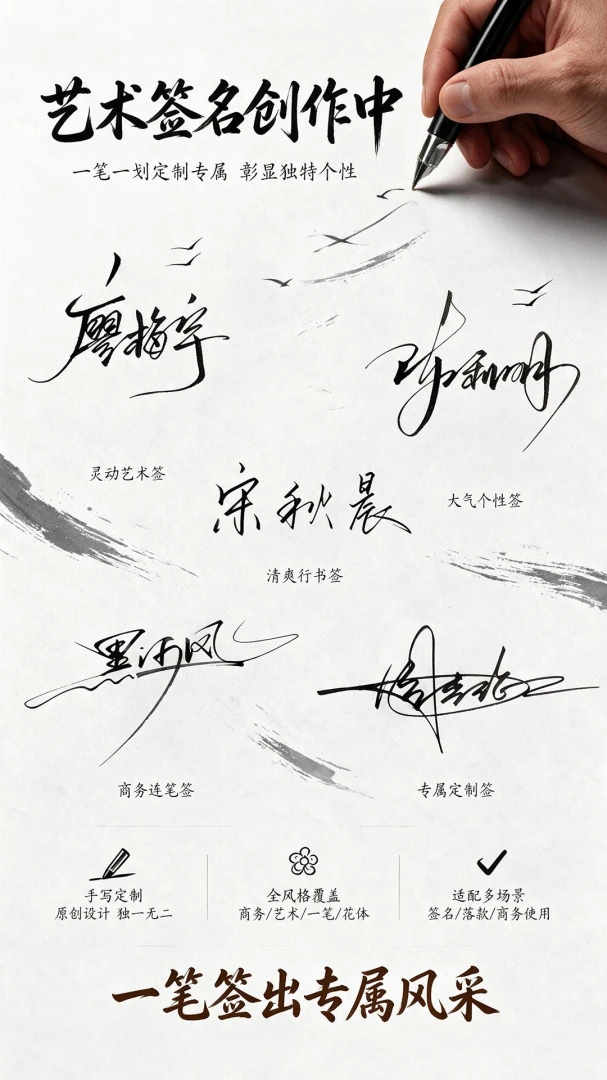 艺术签名创作中
一笔一划定制专属 彰显独特个性
廖梅宇
灵动艺术签
大气个性签
宋秋晨
清爽行书签
商务连笔签
专属定制签
手写定制
原创设计 独一无二
全风格覆盖
商务/艺术/一笔/花体
适配多场景
签名/落款/商务使用
一笔签出专属风采